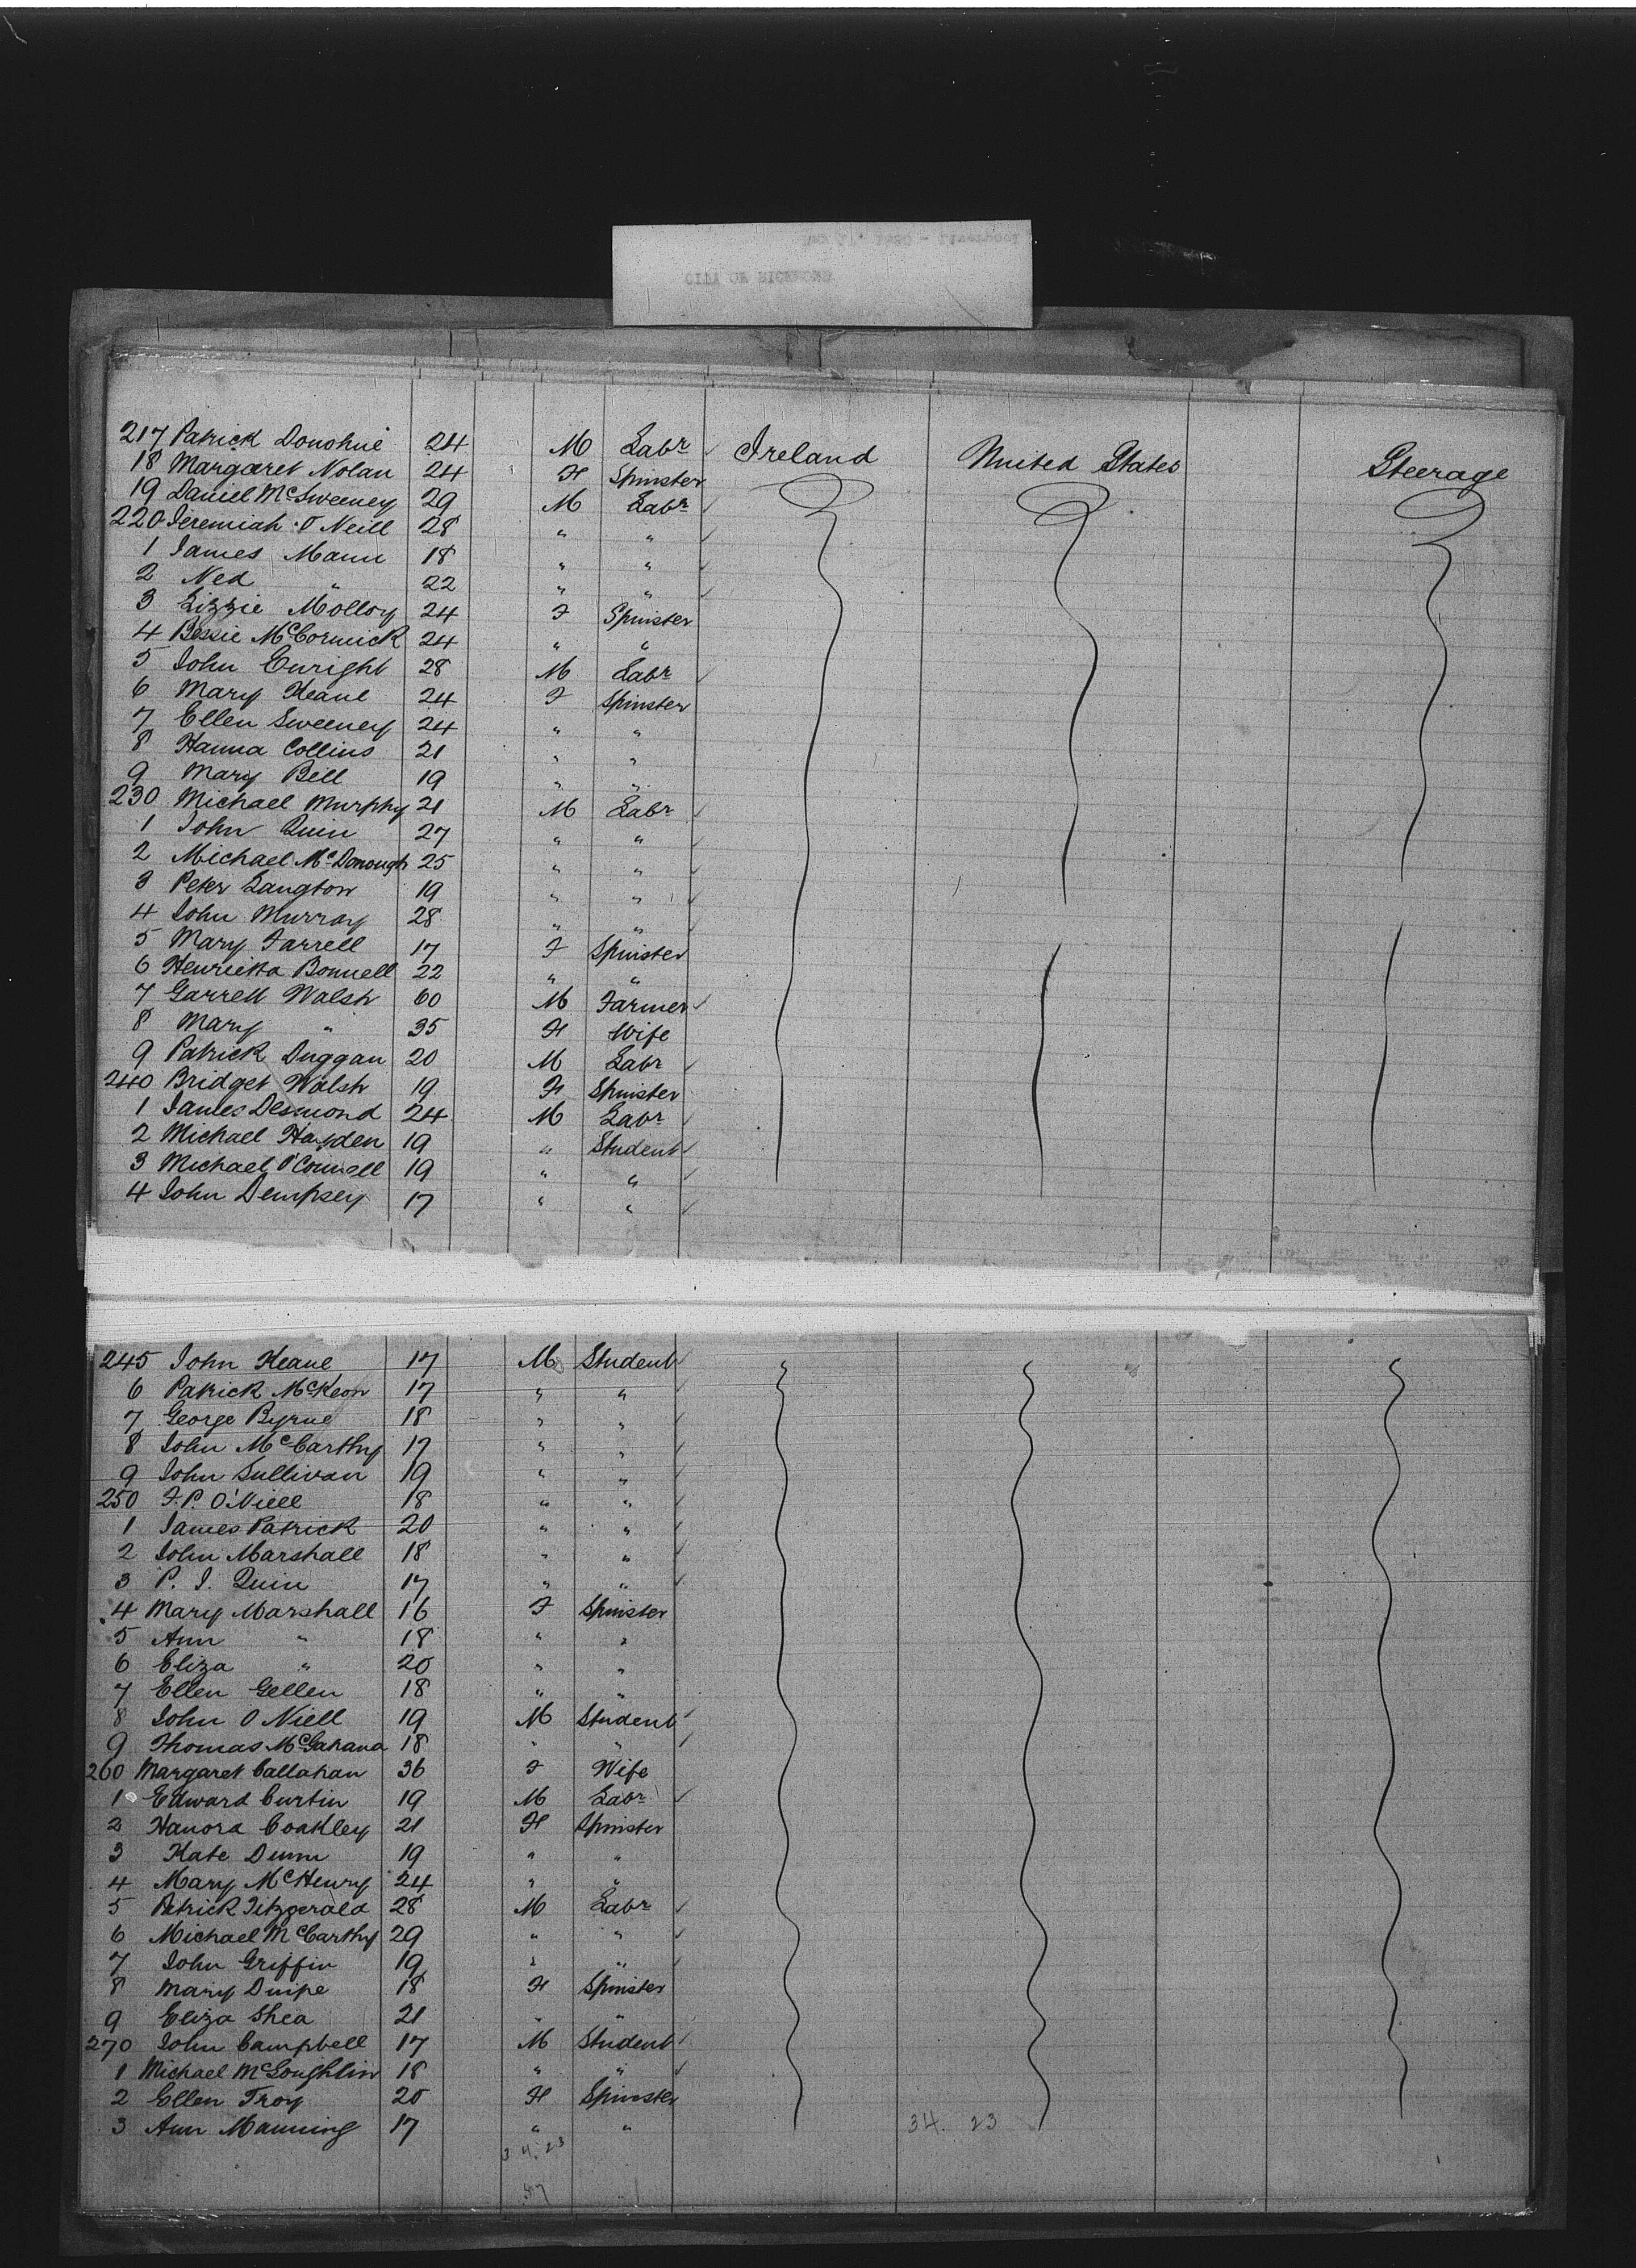 CITY OF RICHMOND
217 Patrick Donohue 24 M Labr Ireland United States Steerage
18 Margaret Nolan 24 F Spinster
19 Daniel McSweeney 29 M Labr
220 Jeremiah O Neill 28 " "
1 James Mann 18 " "
2 Ned " 22 " "
3 Lizzie Molloy 24 F Spinster
4 Bessie McCormick 24 " "
5 John Enright 28 M Labr
6 Mary Keane 24 F Spinster
7 Ellen Sweeney 24 " "
8 Hanna Collins 21 " "
9 Mary Bell 19 " "
230 Michael Murphy 21 M Labr
1 John Quin 27 " "
2 Michael McDonough 25 " "
3 Peter Langton 19 " "
4 John Murray 28 " "
5 Mary Farrell 17 F Spinster
6 Henrietta Bonnell 22 " "
7 Garrett Walsh 60 M Farmer
8 Mary " 35 F Wife
9 Patrick Duggan 20 M Labr
240 Bridget Walsh 19 F Spinster
1 James Desmond 24 M Labr
2 Michael Hayden 19 " Student
3 Michael O'Connell 19 " "
4 John Dempsey 17 " "
245 John Keane 17 M Student
6 Patrick McKeon 17 " "
7 George Byrne 18 " "
8 John McCarthy 17 " "
9 John Sullivan 19 " "
250 F.P. O'Niell 18 " "
1 James Patrick 20 " "
2 John Marshall 18 " "
3 P. J. Quin 17 " "
4 Mary Marshall 16 F Spinster
5 Ann " 18 " "
6 Eliza " 20 " "
7 Ellen Gellen 18 " "
8 John O Niell 19 M Student
9 Thomas McGahana 18 " "
260 Margaret Callahan 36 F Wife
1 Edward Curtin 19 M Labr
2 Hanora Coakley 21 F Spinster
3 Kate Dunn 19 " "
4 Mary McHenry 24 " "
5 Patrick Fitzgerald 28 M Labr
6 Michael McCarthy 29 " "
7 John Griffin 19 " "
8 Mary Dwipe 18 F Spinster
9 Eliza Shea 21 " "
270 John Campbell 17 M Student
1 Michael McLoughlin 18 " "
2 Ellen Troy 20 F Spinster
3 Ann Manning 17 " "
34. 23 34. 23
57